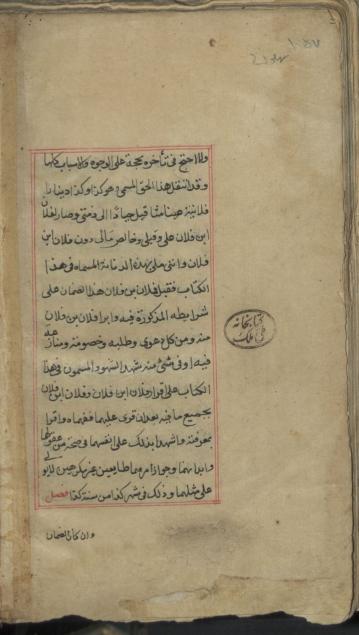 ولا احتج فى تأخره بحجة على الوجوه والاسباب كلها
وقد انتقل هذا الحق المسمى وهو كذا وكذا دينارا
مثاقيل جيادا الى ذمتى وصار لفلان
ابن فلان على وقبلى وخالص مالى دون فلان ابن
فلان وانى ملى بهذه الدنانير المسماه فى هذا
الكتاب فقبل فلان بن فلان هذا الضمان على
شرايطه المذكورة فيه وابرا فلان بن فلان
منه ومن كل دعوى وطلبه وخصومة ومنازعة
فيه او فى شئ منه شهد الشهود المسمون فى هذا
الكتاب على اقرار فلان ابن فلان وفلان ابن فلان
بجميع ما فيه بعد ان قرى عليهما ففهماه واقرا
بمعرفته واشهدا بذلك على انفسهما فى صحة من عقولهما
وابدانهما وجواز امرهما طايعين غير مكرهين
على مثلهما وذلك فى شهر كذا من سنة كذا فصل
وان كان الضمان
كتابخانه
ملك